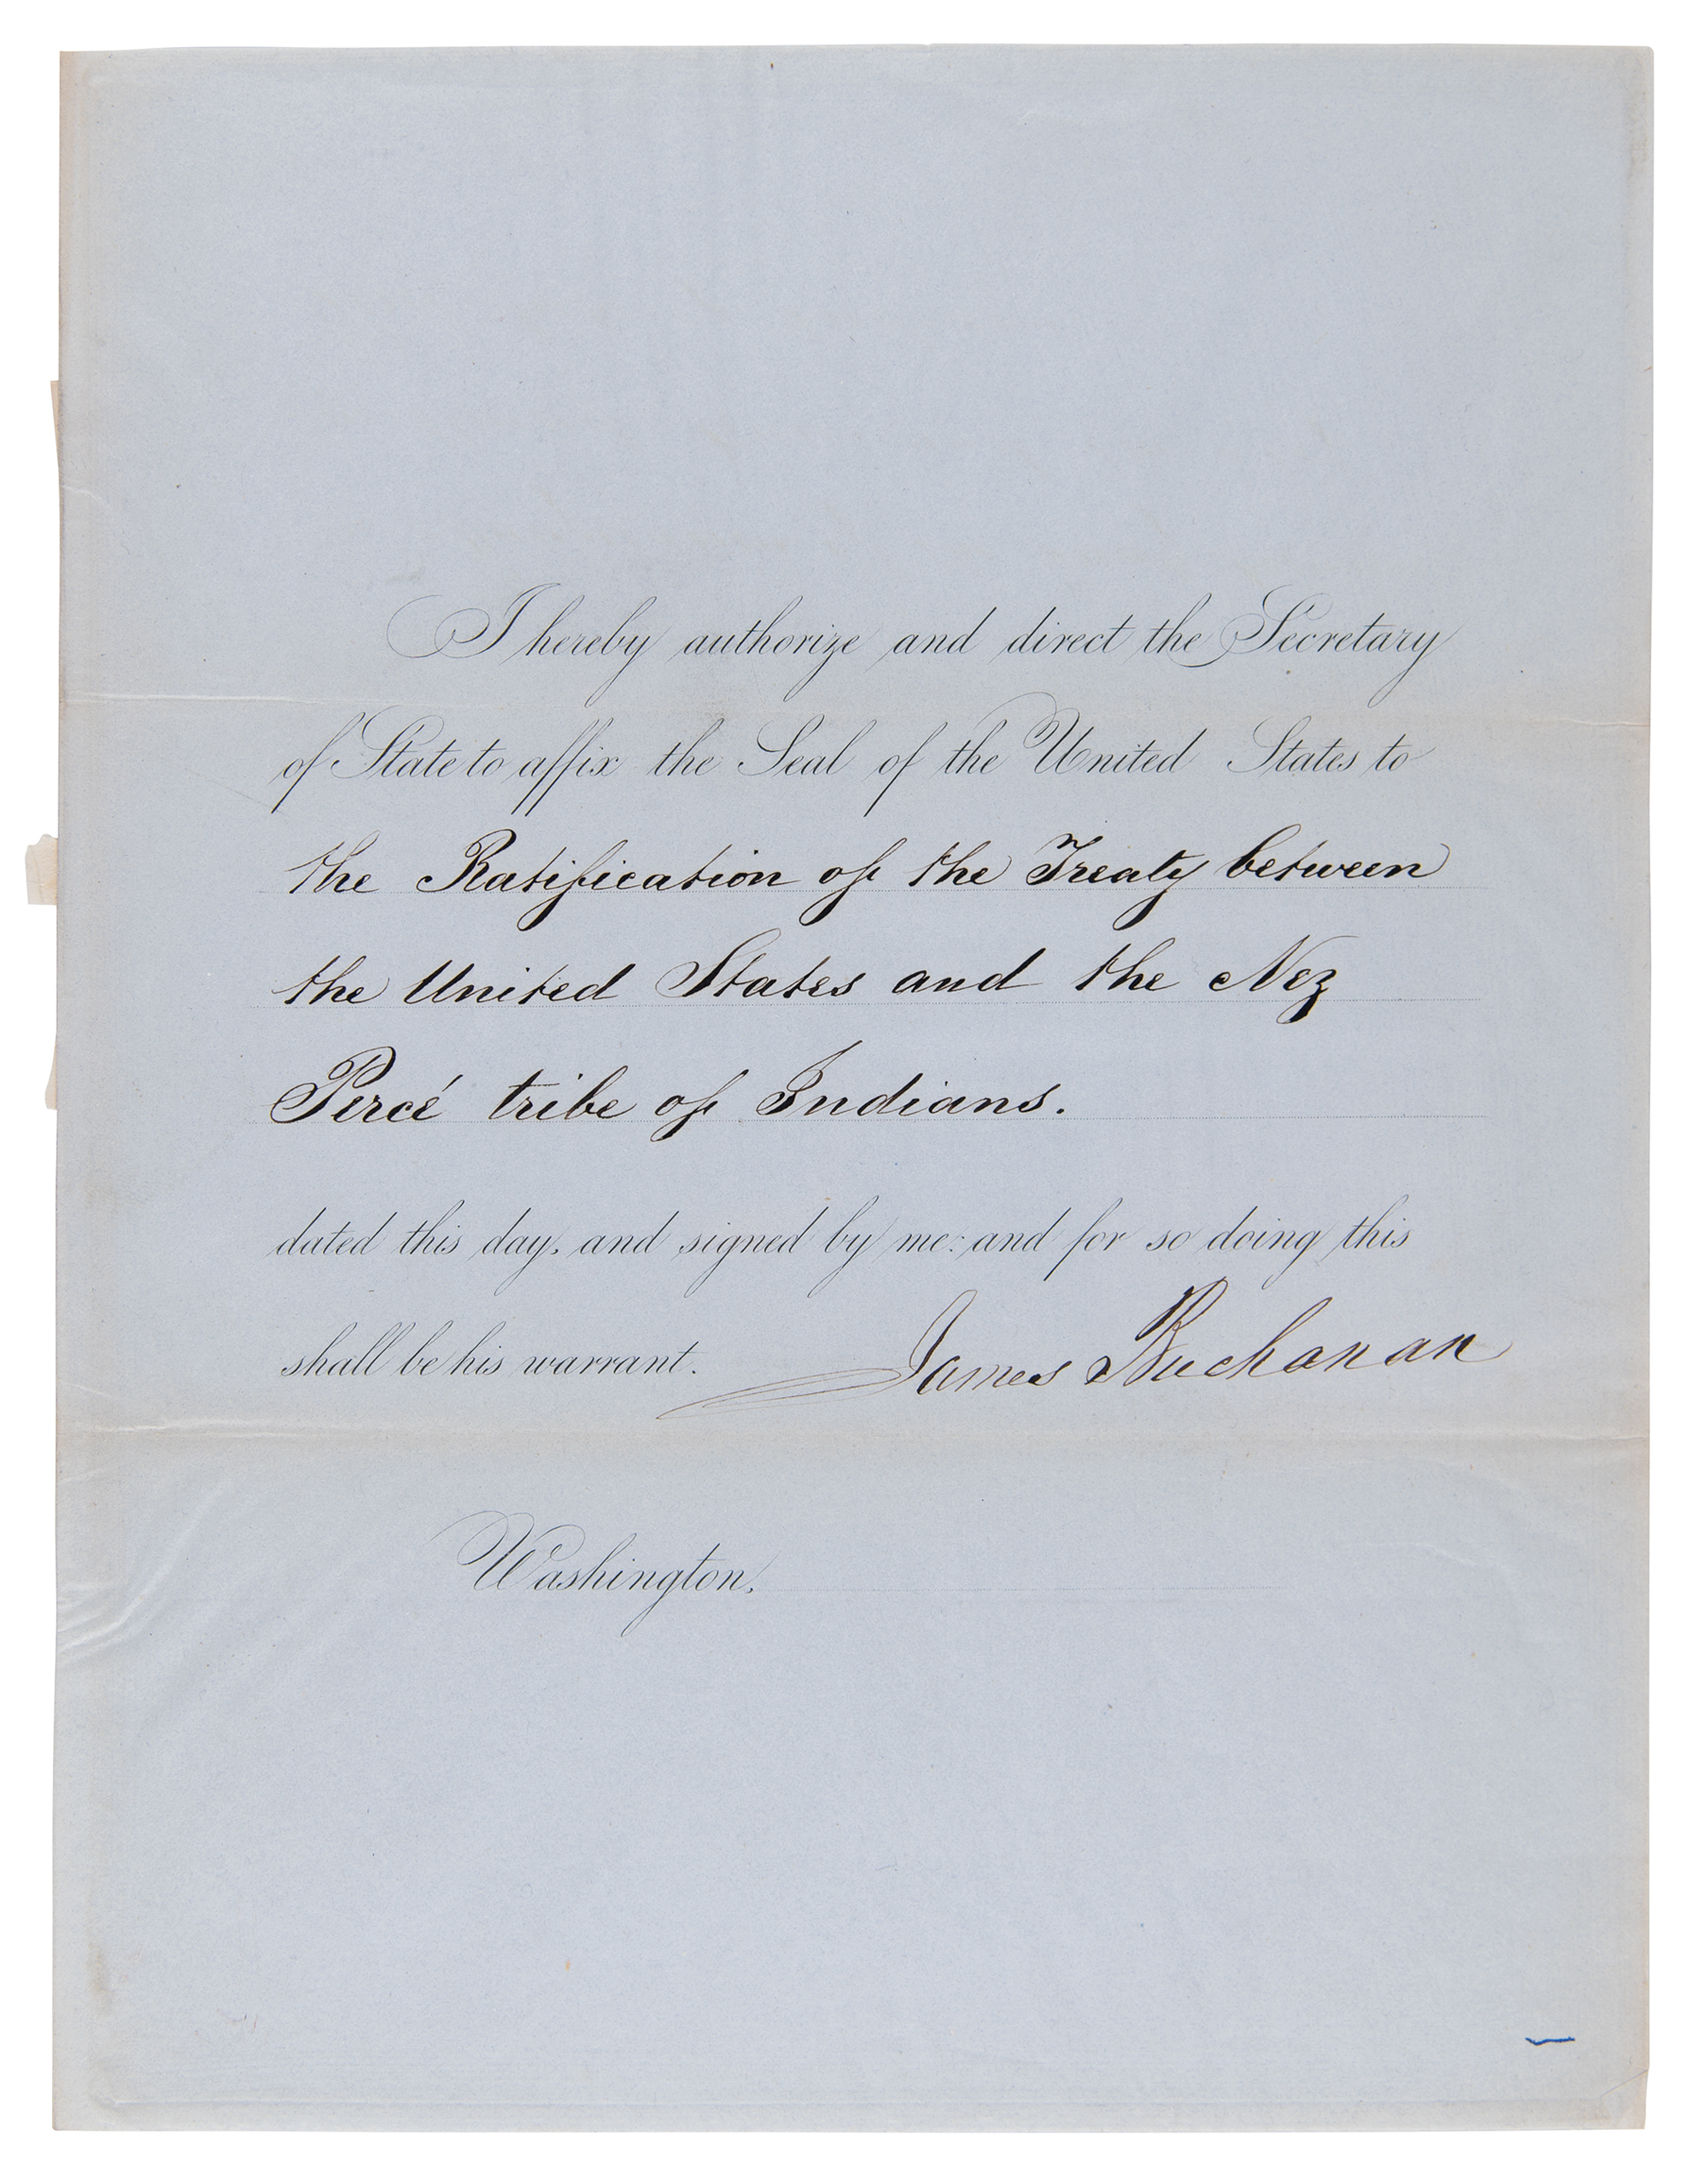 I hereby authorize and direct the Secretary
of State to affix the Seal of the United States to
the Ratification of the Treaty between
the United States and the Nez
Percé tribe of Indians.
dated this day, and signed by me: and for so doing this
shall be his warrant. James Buchanan
Washington,